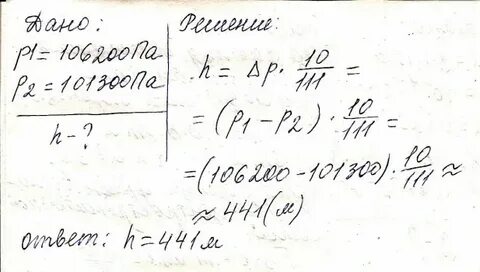 Дано:
p1 = 106200 Па
p2 = 101300 Па
h - ?
Решение:
h = Δp · 10/111 =
= (p1 - p2) · 10/111 =
= (106200 - 101300) · 10/111 ≈
≈ 441 (м)
ответ: h = 441 м